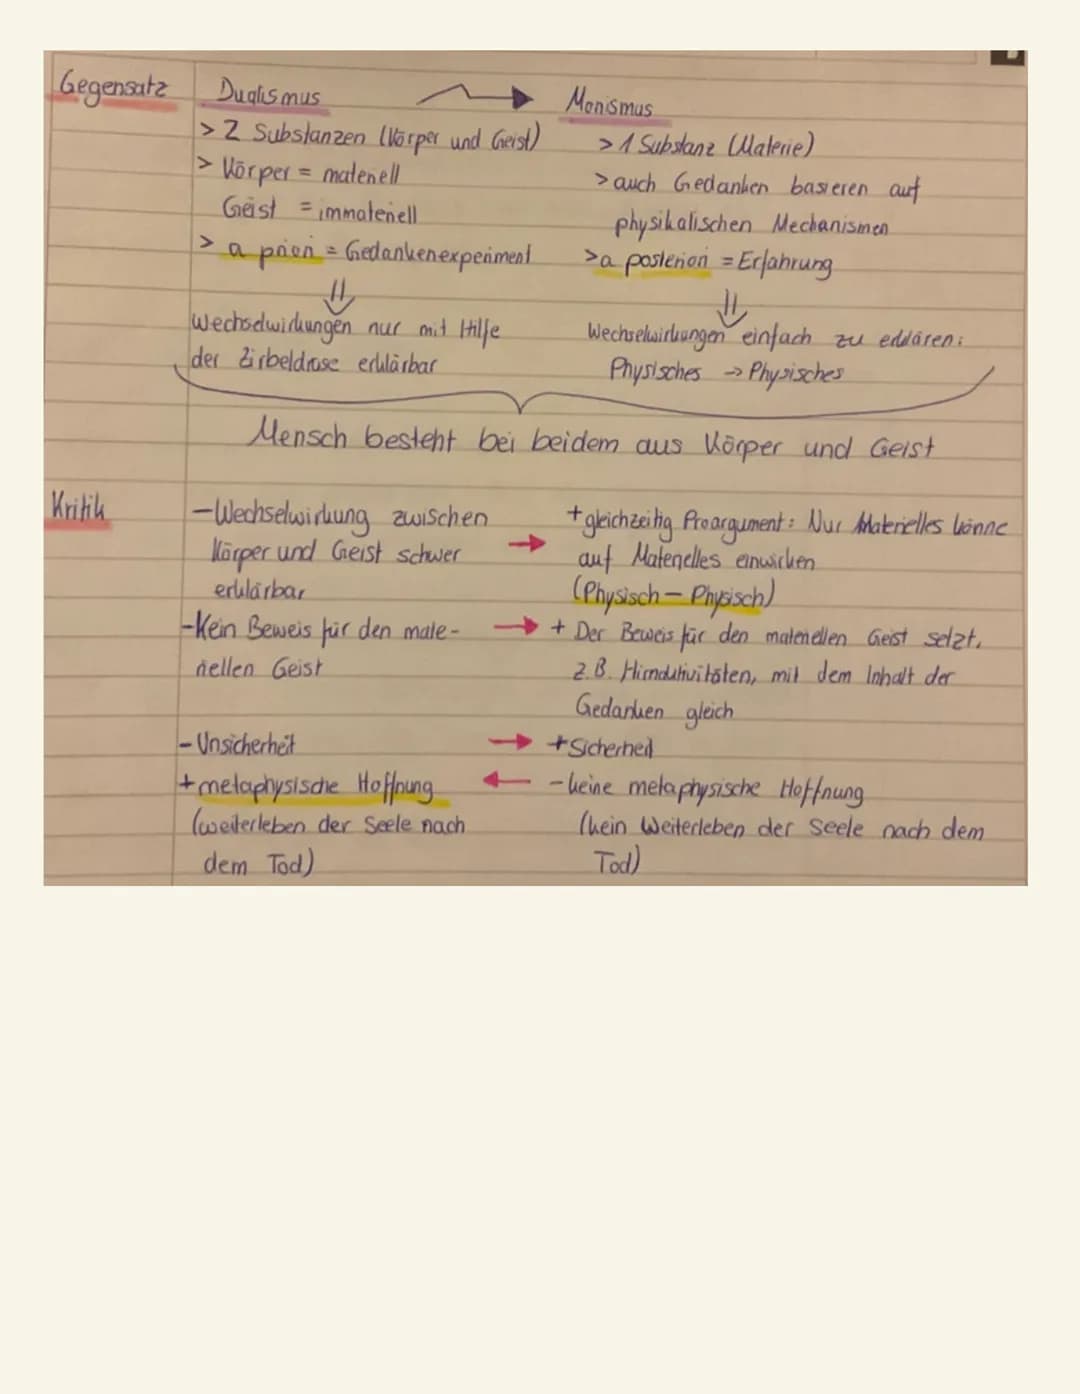 Gegensatz
Dualismus
> 2 Substanzen (Körper und Geist)
> Körper = materiell
Geist = immateriell
> a priori = Gedankenexperiment
Wechselwirkungen nur mit Hilfe
der Zirbeldrüse erklärbar
Monismus
> 1 Substanz (Materie)
> auch Gedanken basieren auf
physikalischen Mechanismen
> a posteriori = Erfahrung
Wechselwirkungen einfach zu erklären:
Physisches → Physisches
Mensch besteht bei beidem aus Körper und Geist
Kritik
- Wechselwirkung zwischen
Körper und Geist schwer
erklärbar
→
+ gleichzeitig Proargument: Nur Materielles könne
auf Materielles einwirken
(Physisch - Physisch)
- Kein Beweis für den mate-
riellen Geist
→
+ Der Beweis für den materiellen Geist setzt,
z.B. Hirnaktivitäten, mit dem Inhalt der
Gedanken gleich
- Unsicherheit → + Sicherheit
+ metaphysische Hoffnung ← - keine metaphysische Hoffnung
(weiterleben der Seele nach
dem Tod)
(kein Weiterleben der Seele nach dem
Tod)